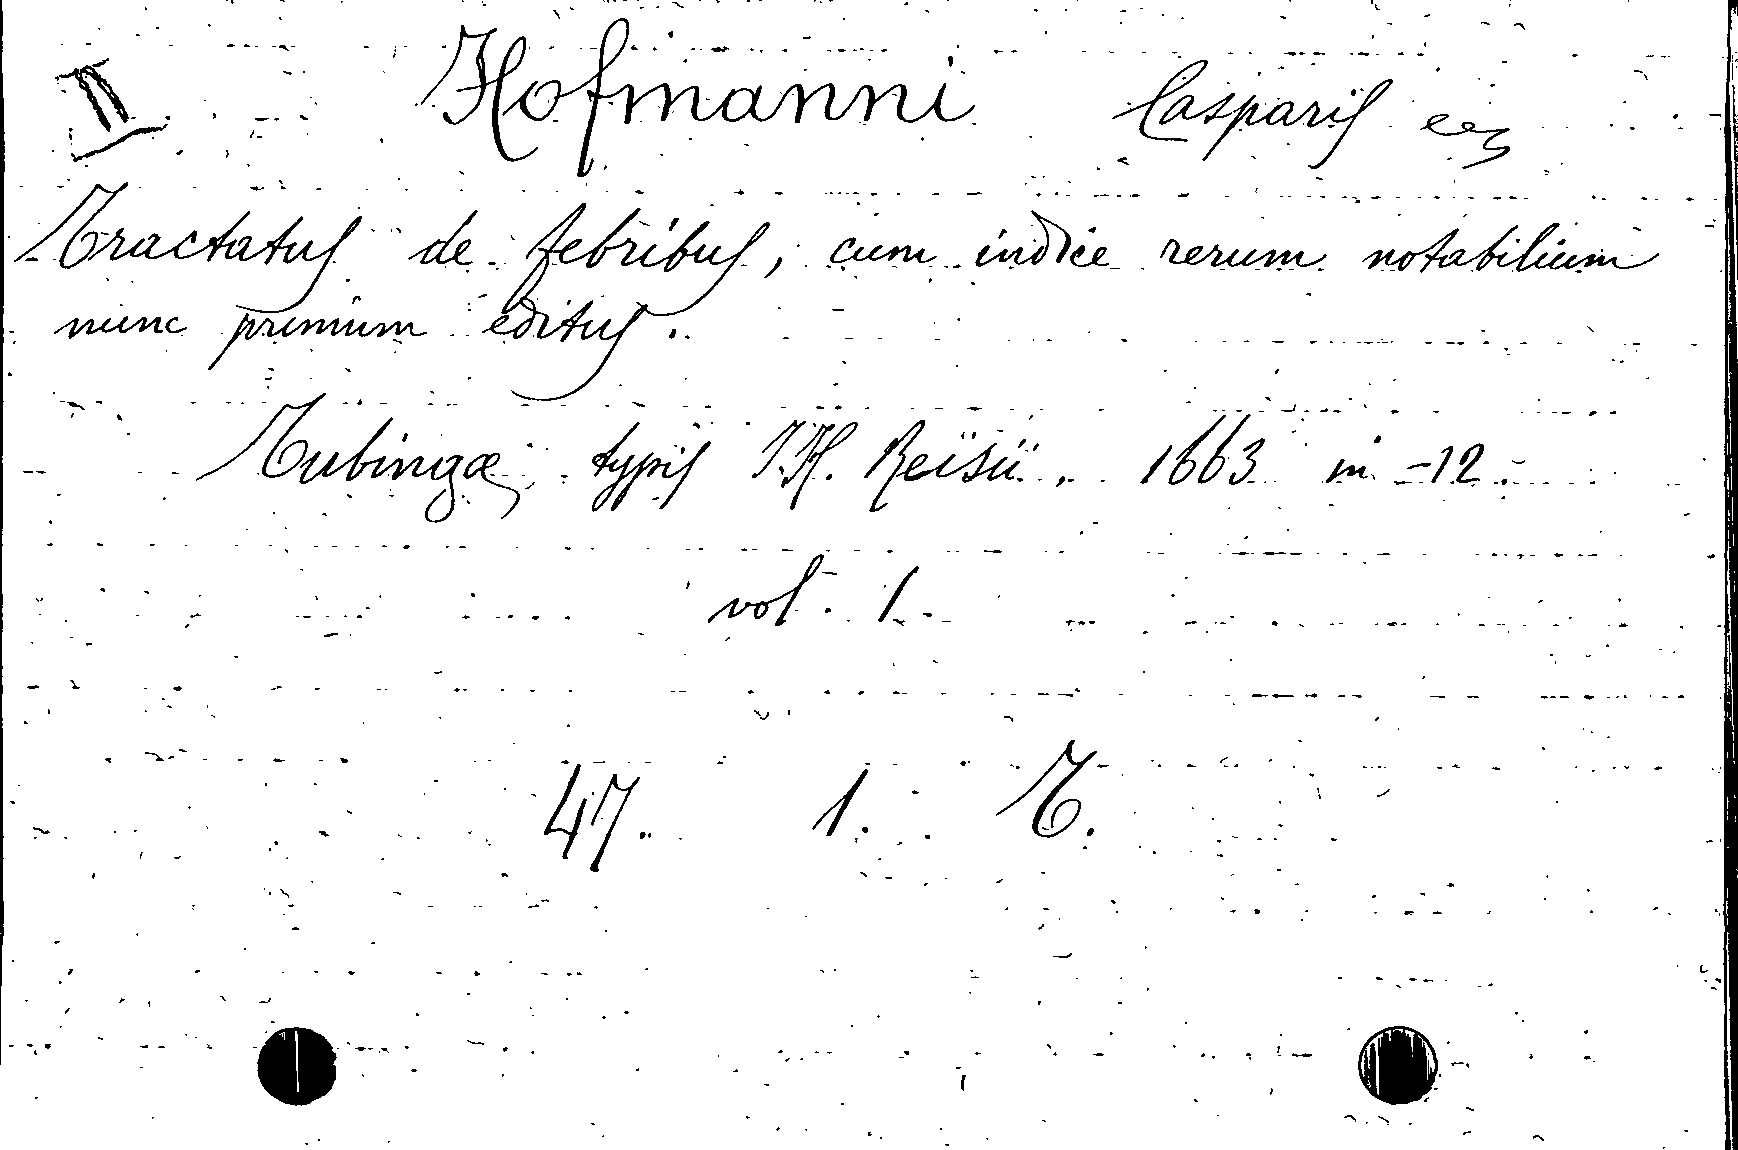 II Hofmanni Casparis
Tractatus de febribus, cum indice rerum notabilium
nunc primum editus.
Tubingæ, typis J.H. Reisii. 1663 in-12.
vol. 1.
47. 1. T.